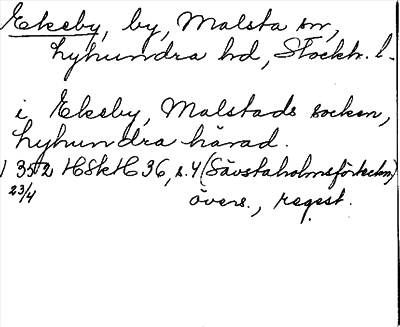 Ekeby, by, Malsta sn,
Lyhundra hd, Stockh. l.
i Ekeby, Malstads socken,
Lyhundra härad.
1352 HSkH 36, s. 4 (Sävstaholmsförteckn)
23/4 övers., regest.